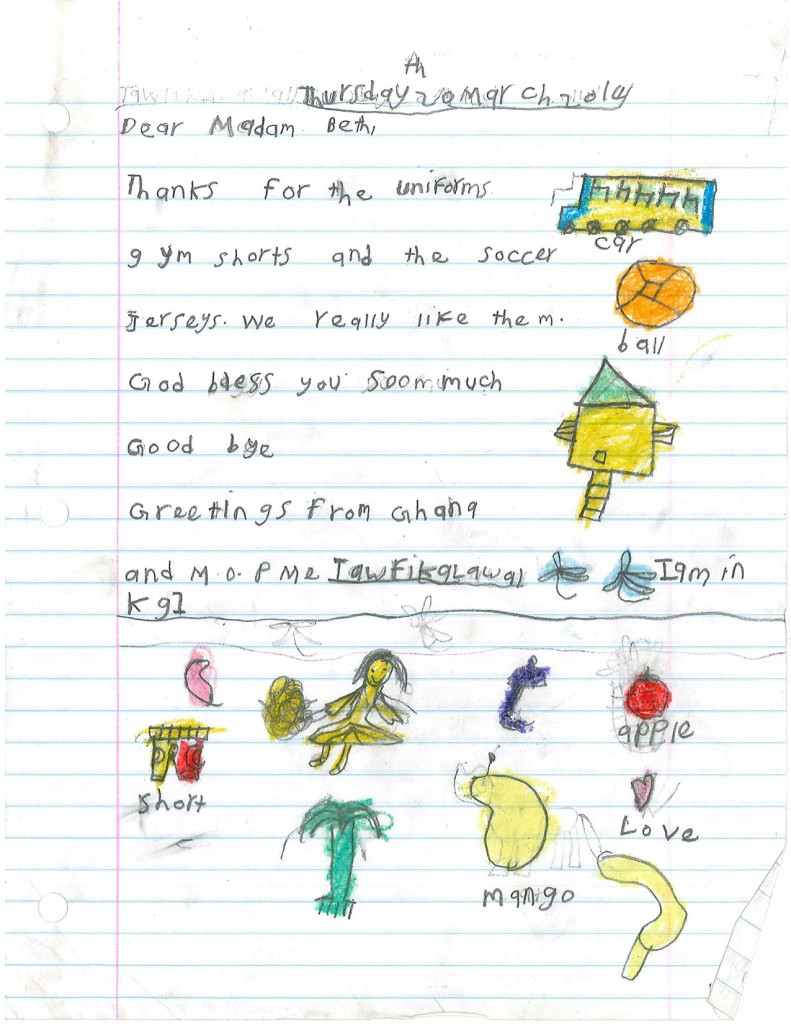 th
Thursday 20 March 2014
Dear Madam Beth,
Thanks for the uniforms
car
gym shorts and the soccer
jerseys. We really like them.
ball
God bless you Soommuch
Good bye
Greetings from Ghana
and M.O.P Me Iawfikalawal I am in
KgI
apple
short
Love
mango